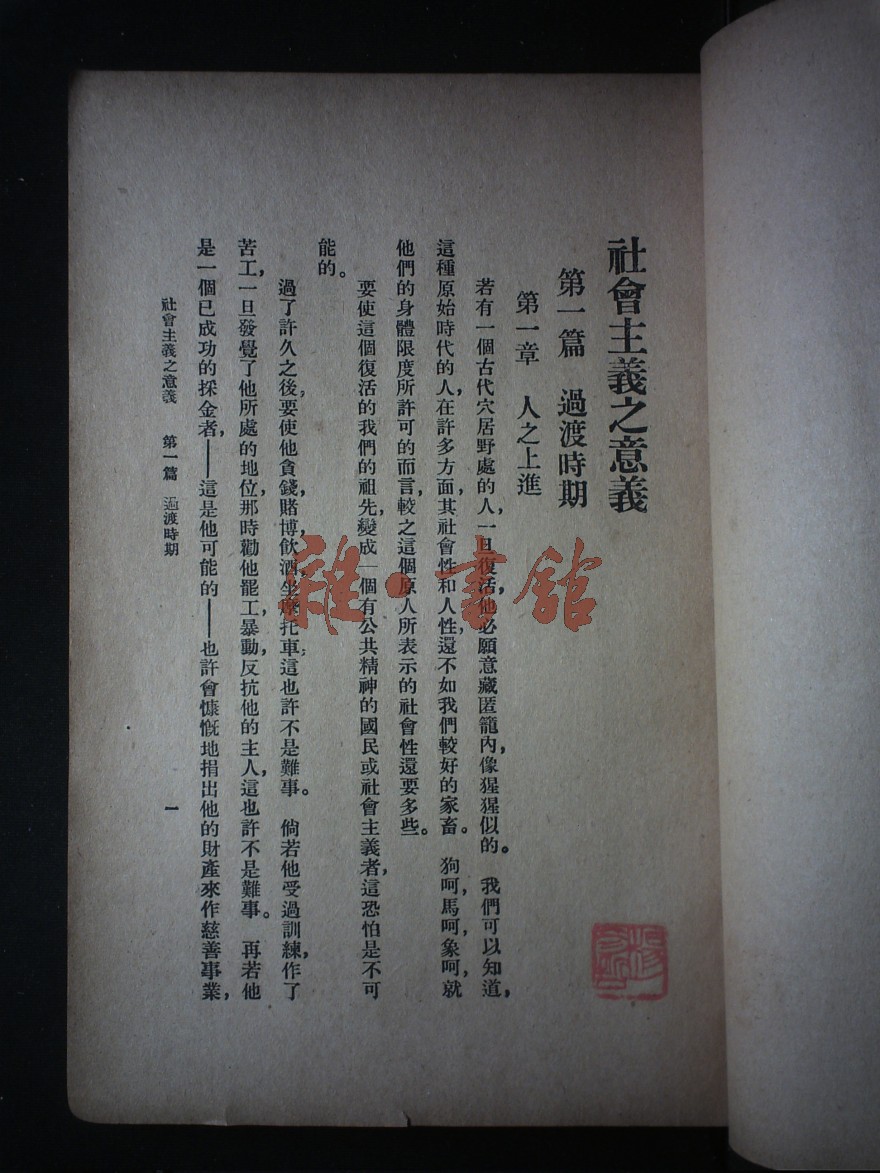 社會主義之意義
第一篇　過渡時期
第一章　人之上進
若有一個古代穴居野處的人，一旦復活，他必願意藏匿籠內，像猩猩似的。　我們可以知道，
這種原始時代的人，在許多方面，其社會性和人性，還不如我們較好的家畜。　狗呵，馬呵，象呵，就
他們的身體限度所許可的而言，較之這個原人所表示的社會性還要多些。
要使這個復活的我們的祖先，變成一個有公共精神的國民或社會主義者，這恐怕是不可
能的。
過了許久之後，要使他貪錢，賭博，飲酒，坐摩托車，這也許不是難事。　倘若他受過訓練，作了
苦工，一旦發覺了他所處的地位，那時勸他罷工暴動，反抗他的主人，這也許不是難事。　再若他
是一個已成功的採金者，——這是他可能的——也許會慷慨地捐出他的財產來作慈善事業，
社會主義之意義　第一篇　過渡時期
一
雜·書館